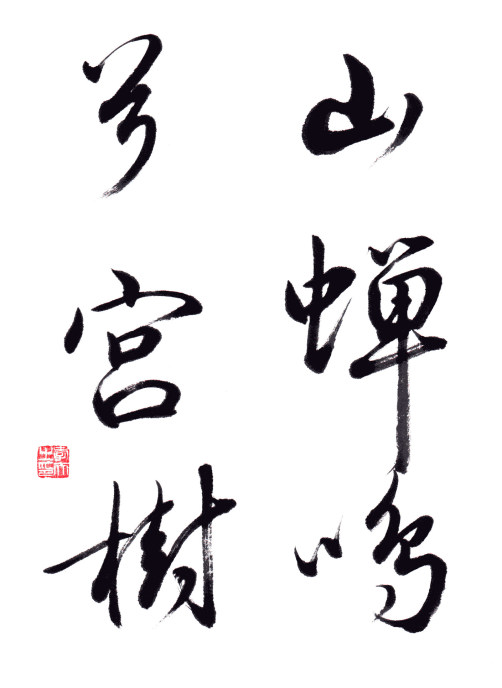 山蝉鳴
兮宮樹